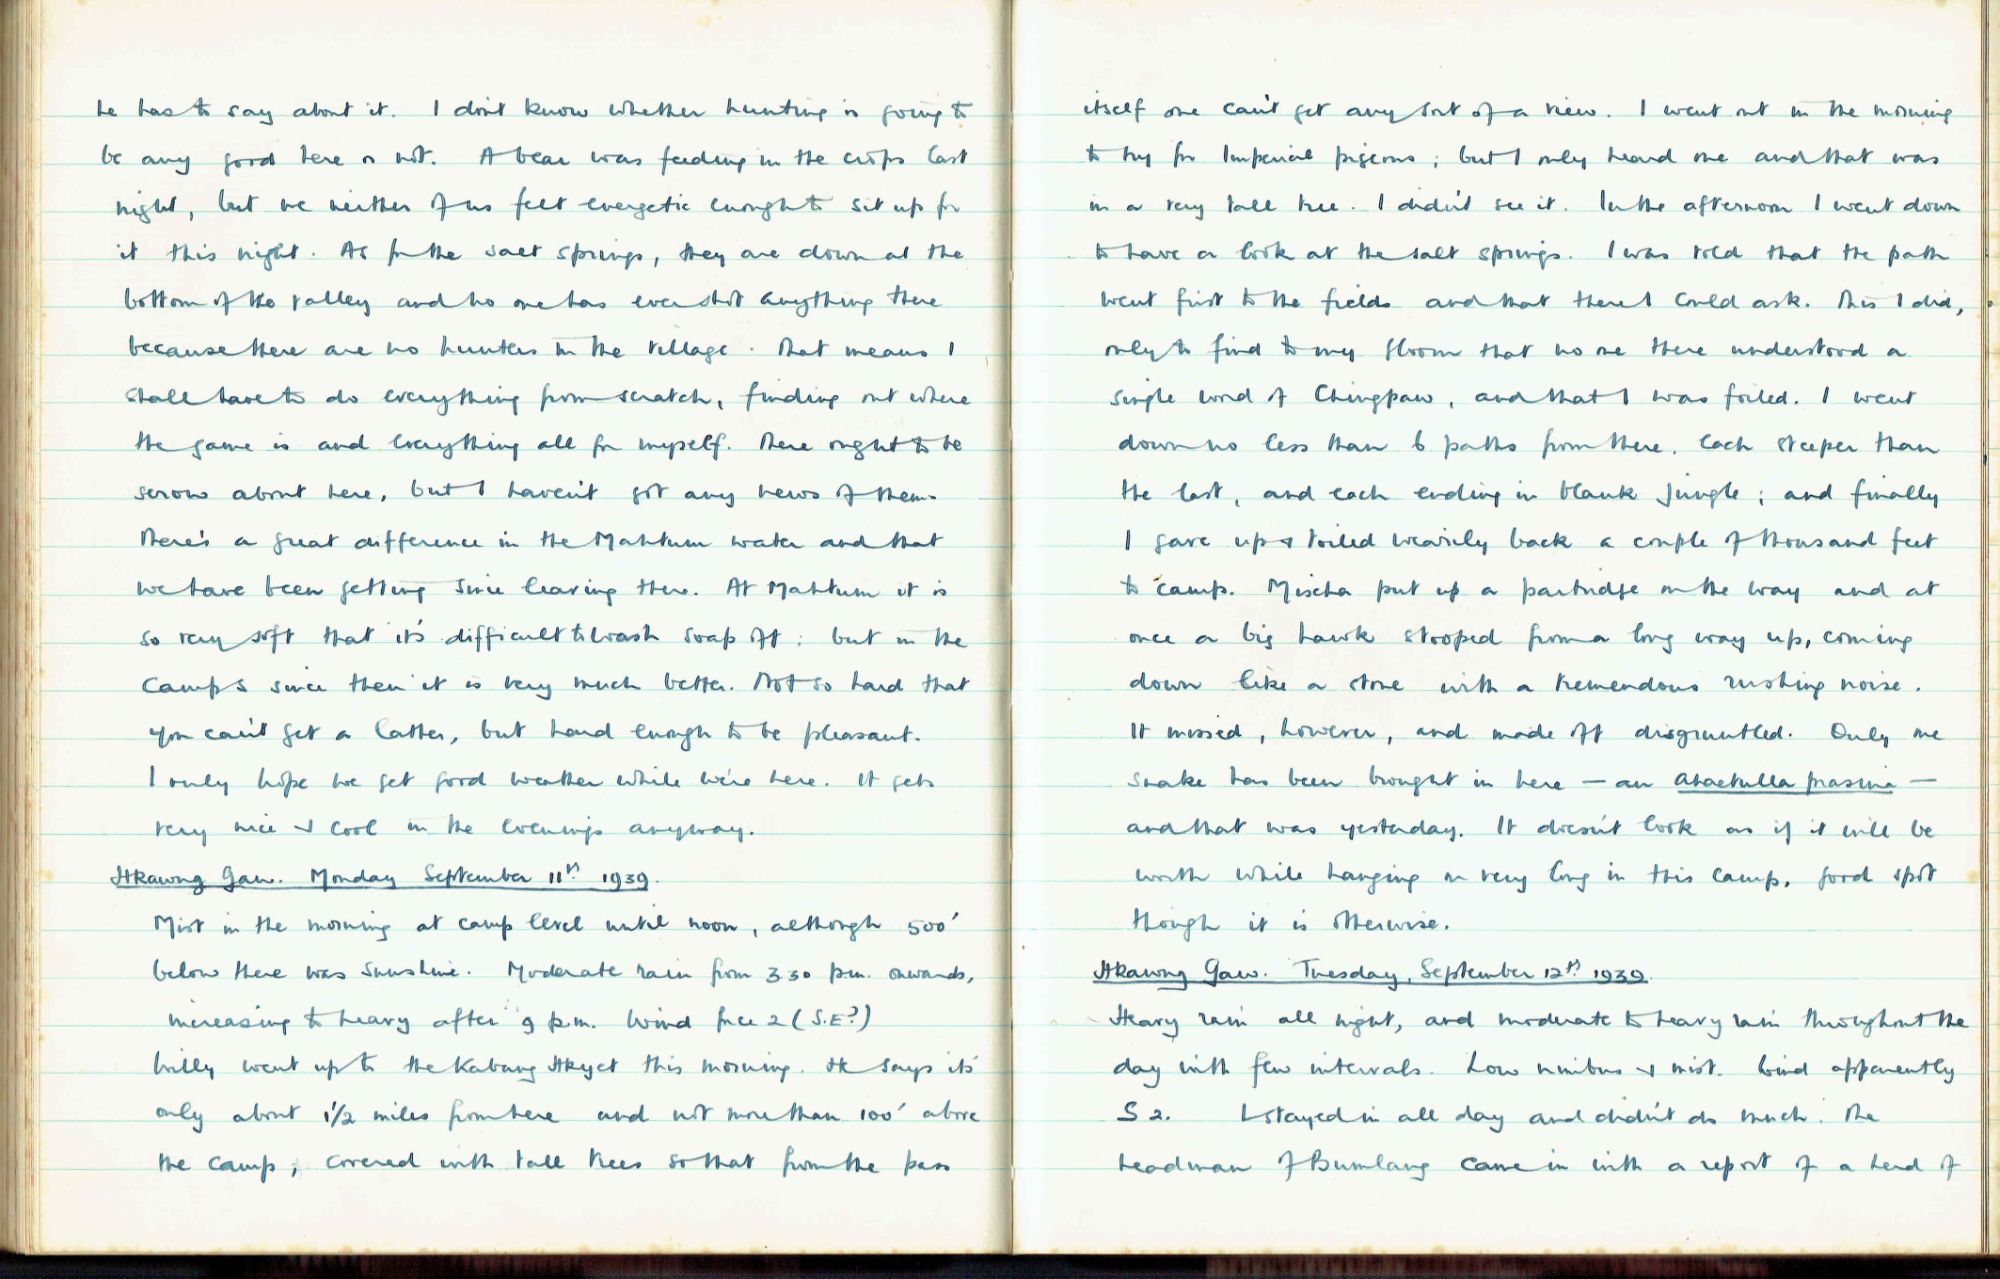 he has to say about it. I don't know whether hunting is going to
be any good here or not. A bear was feeding in the crops last
night, but we neither of us felt energetic enough to sit up for
it this night. As for the salt springs, they are down at the
bottom of the valley and no one has ever shot anything there
because there are no hunters in the village. That means I
shall have to do everything from scratch, finding out where
the game is and everything all for myself. There ought to be
serow about here, but I haven't got any news of them.
There's a great difference in the Mahtum water and that
we have been getting since leaving there. At Mahtum it is
so very soft that it's difficult to wash soap off; but in the
camps since then it is very much better. Not so hard that
you can't get a lather, but hard enough to be pleasant.
I only hope we get good weather while we're here. It gets
very nice & cool in the evenings anyway.
Hkawng Gaw. Monday September 11th 1939.
Mist in the morning at camp level until noon, although 500'
below there was sunshine. Moderate rain from 3.30 p.m. onwards,
increasing to heavy after 9 p.m. Wind force 2 (S.E?)
Billy went up to the Kabang Hkyet this morning. He says it's
only about 1½ miles from here and not more than 100' above
the camp; covered with tall trees so that from the pass
itself one can't get any sort of a view. I went out in the morning
to try for Imperial pigeons; but I only heard one and that was
in a very tall tree. I didn't see it. In the afternoon I went down
to have a look at the salt springs. I was told that the path
went first to the fields and that there I could ask. This I did,
only to find to my gloom that no one there understood a
single word of Chingpaw, and that I was foiled. I went
down no less than 6 paths from there. Each steeper than
the last, and each ending in blank jungle; and finally
I gave up & toiled wearily back a couple of thousand feet
to camp. Mischa put up a partridge on the way and at
once a big hawk stooped from a long way up, coming
down like a stone with a tremendous rushing noise.
It missed, however, and made off disgruntled. Only one
snake has been brought in here — an Ahaetulla prasina —
and that was yesterday. It doesn't look as if it will be
worth while hanging on very long in this camp, good spot
though it is otherwise.
Hkawng Gaw. Tuesday, September 12th 1939.
Heavy rain all night, and moderate to heavy rain throughout the
day with few intervals. Low nimbus & mist. Wind apparently
S 2. I stayed in all day and didn't do much. The
headman of Bumlang came in with a report of a herd of